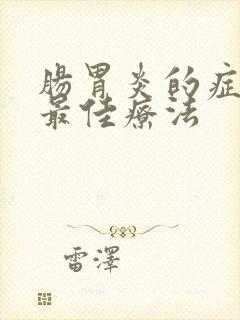 腸胃炎的症
最佳療法
雷澤